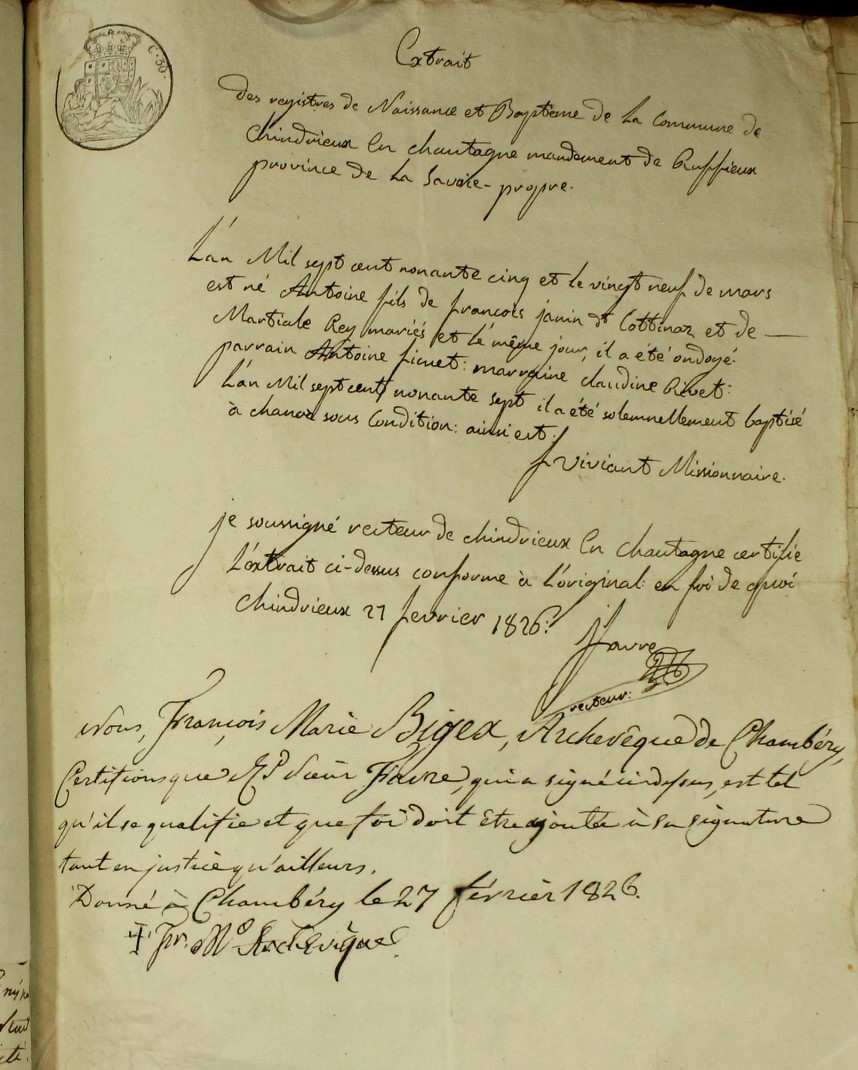 C. 30.
Extrait
des registres de Naissance et Baptême de la Commune de
chindrieux en chautagne mandement de Ruffieux
province de la Savoie-propre.
L'an Mil sept cent nonante cinq et le vingt neuf de mars
est né Antoine fils de francois janin dt Cottinaz et de
Martiale Rey mariés et le même jour, il a été ondoyé.
parrain Antoine : marraine claudine Rivet:
L'an Mil sept cent nonante sept il a été solemnellement baptisé
à chanaz sous Condition: ainsi est:
f viviant Missionnaire.
je soussigné recteur de chindrieux en chautagne certifie
L'extrait ci-dessus conforme à L'original: en foi de quoi
chindrieux 27 fevrier 1826:
j favre
recteur:
Nous, François Marie Bigex, Archevêque de Chambéry,
Certifions que Rd Sieur Favre, qui a signé ci dessus, est tel
qu'il se qualifie et que foi doit être ajoutée à sa signature
tant en justice qu'ailleurs.
Donné à Chambéry le 27 février 1826.
✝ Fr. Me Archevêque.